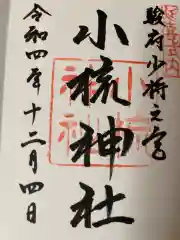 駿府少将之宮
小梳神社
令和四年十二月四日